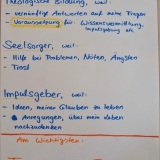 Theologische Bildung, weil:
- vernünftige Antworten auf meine Fragen
- Voraussetzung für: Wissensvermittlung, Impulsgebung etc.
Seelsorger, weil:
- Hilfe bei Problemen, Nöten, Ängsten
- Trost
Impulsgeber, weil:
- Ideen, meinen Glauben zu leben
- Anregungen, über mein Leben
nachzudenken
Am Wichtigsten: